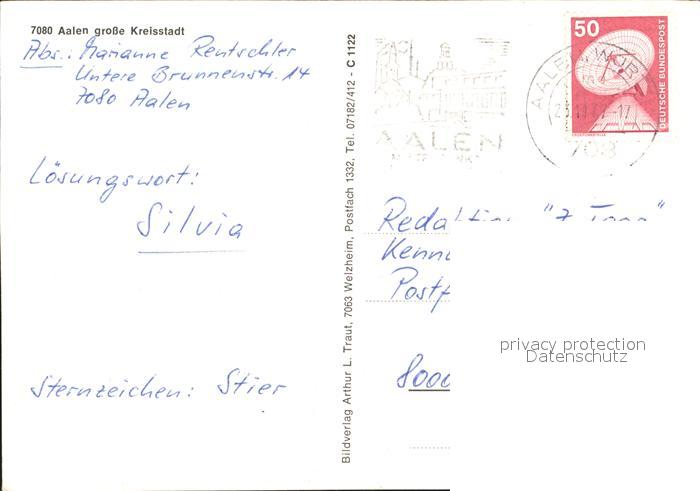 7080 Aalen große Kreisstadt
Abs.: Marianne Rentschler
Untere Brunnenstr. 14
7080 Aalen
Lösungswort:
Silvia
Sternzeichen: Stier
Bildverlag Arthur L. Traut, 7063 Welzheim, Postfach 1332, Tel. 07182/412 - C 1122
AALEN
50
DEUTSCHE BUNDESPOST
AALEN
708
"7
Postf
8000
privacy protection
Datenschutz